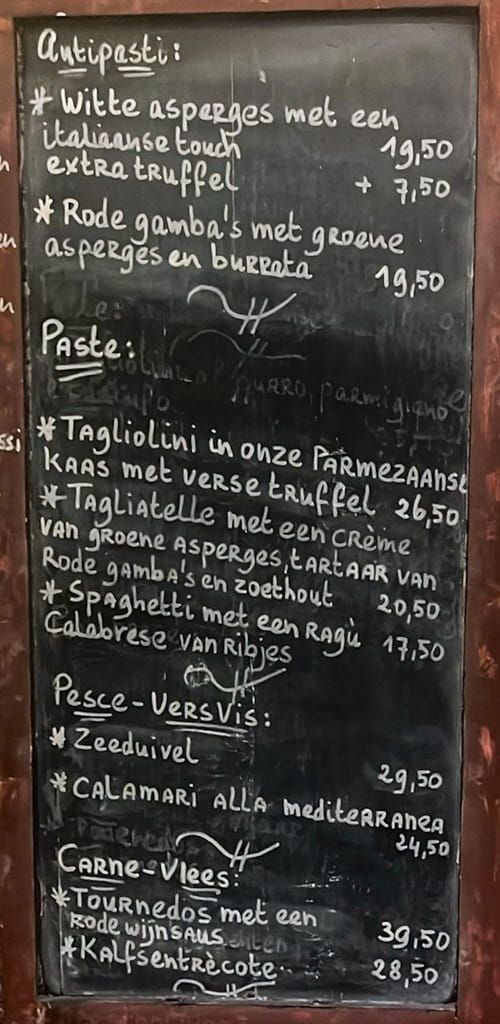 Antipasti:
* Witte asperges met een
italiaanse touch 19,50
extra truffel + 7,50
* Rode gamba's met groene
asperges en burrata 19,50
Paste:
* Tagliolini in onze Parmezaanse
kaas met verse truffel 26,50
* Tagliatelle met een crème
van groene asperges, tartaar van
Rode gamba's en zoethout 20,50
* Spaghetti met een Ragù 17,50
Calabrese van Ribjes
Pesce - Vers Vis:
* Zeeduivel
29,50
* Calamari alla mediterranea
24,50
Carne - Vlees:
* Tournedos met een
Rode wijnsaus 39,50
* Kalfsentrècote 28,50